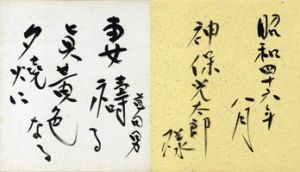 昭和四十六年
八月
神保光太郎
妻禱る
草田男
眞黄色なる
夕燒に